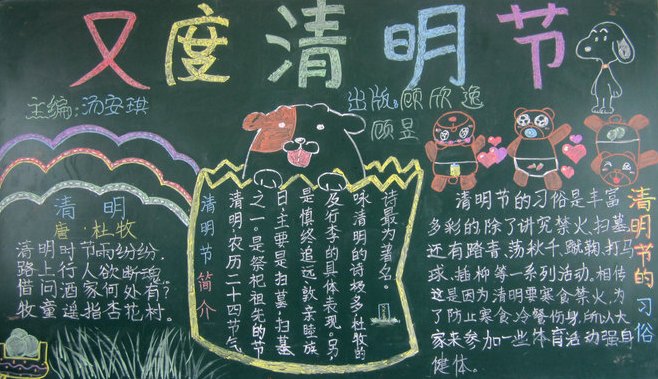 又度清明节
主编:汤安琪
出版:顾欣逸
顾昱
清明
唐·杜牧
清明时节雨纷纷,
路上行人欲断魂。
借问酒家何处有?
牧童遥指杏花村。
清明节简介
清明,农历二十四节气
之一。是祭祀祖先的节
日主要是扫墓,扫墓
是慎终追远,敦亲睦族
及行孝的具体表现。另,
咏清明的诗极多杜牧的
诗最为著名。
清明节的习俗
清明节的习俗是丰富
多彩的除了讲究禁火、扫墓,
还有踏青、荡秋千、蹴鞠、打马
球、插柳等一系列活动。相传
这是因为清明要寒食禁火,为
了防止寒食、冷餐伤身,所以大
家来参加一些体育活动强自
健体。